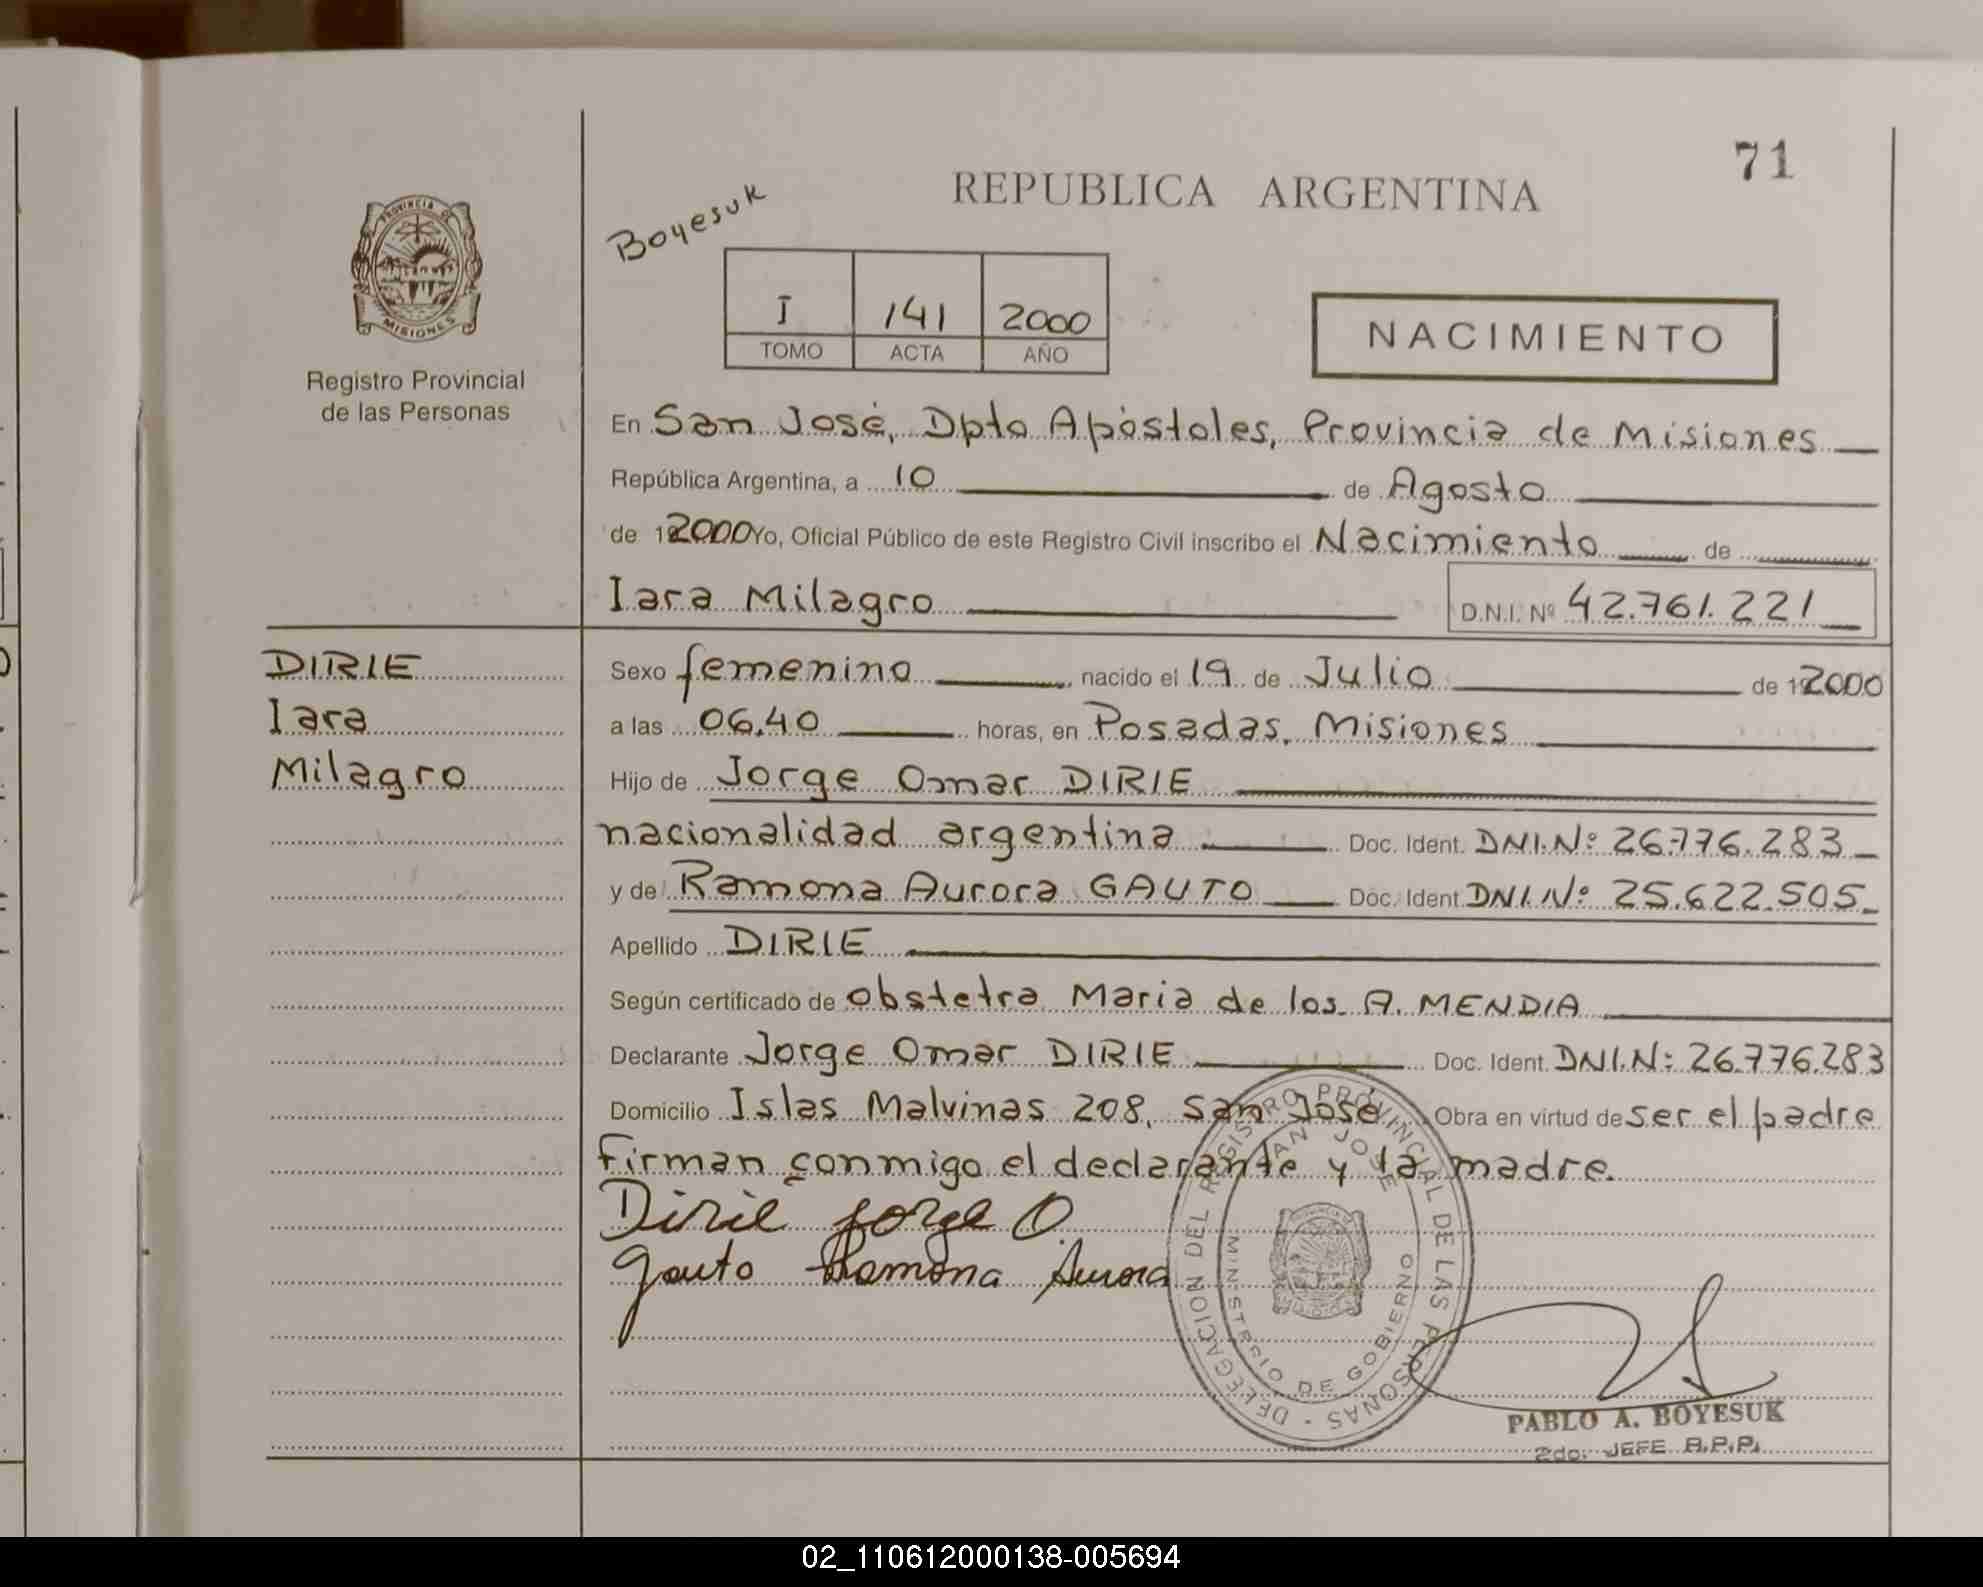 71
REPUBLICA ARGENTINA
Boyesuk
PROVINCIA DE
MISIONES
Registro Provincial
de las Personas
I 141 2000
TOMO ACTA AÑO
NACIMIENTO
En San José, Dpto Apóstoles, Provincia de Misiones
República Argentina, a 10 de Agosto
de 2000 Yo, Oficial Público de este Registro Civil inscribo el Nacimiento de
Iara Milagro D.N.I. Nº 42.761.221
DIRIE
Iara
Milagro
Sexo femenino nacido el 19 de Julio de 2000
a las 06,40 horas, en Posadas, Misiones
Hijo de Jorge Omar DIRIE
nacionalidad argentina Doc. Ident. DNI.Nº 26.776.283
y de Ramona Aurora GAUTO Doc. Ident. DNI.Nº 25.622.505
Apellido DIRIE
Según certificado de obstetra Maria de los A. MENDIA
Declarante Jorge Omar DIRIE Doc. Ident. DNI.N: 26.776.283
Domicilio Islas Malvinas 208, San José Obra en virtud de ser el padre
Firman conmigo el declarante y la madre.
Dirié Jorge O.
Gauto Ramona Aurora
DELEGACION DEL REGISTRO PROVINCIAL DE LAS PERSONAS -
SAN JOSE
MINISTERIO DE GOBIERNO
PABLO A. BOYESUK
2do. JEFE R.P.P.
02_110612000138-005694